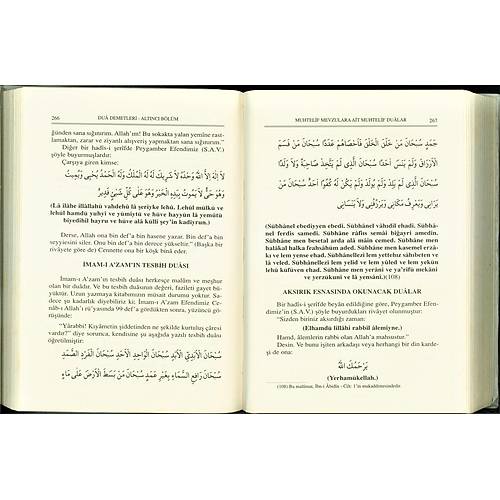 266 DUÂ DEMETLERİ - ALTINCI BÖLÜM
ğünden sana sığınırım. Allah'ım! Bu sokakta yalan yemîne rast-
lamaktan, zarar ve ziyanlı alışveriş yapmaktan sana sığınırım."
Diğer bir hadîs-i şerîfde Peygamber Efendimiz (S.A.V.)
şöyle buyurmuşlardır:
Çarşıya giren kimse:
لَا اِلٰهَ اِلَّا اللّٰهُ وَحْدَهُ لَا شَرِيكَ لَهُ لَهُ الْمُلْكُ وَلَهُ الْحَمْدُ يُحْيِى وَيُمِيتُ
وَهُوَ حَىٌّ لَا يَمُوتُ بِيَدِهِ الْخَيْرُ وَهُوَ عَلٰى كُلِّ شَىْءٍ قَدِيرٌ
(Lâ ilâhe illâllahü vahdehû lâ şerîyke lehû. Lehül mülkü ve
lehül hamdü yuhyi ve yümiytü ve hüve hayyün lâ yemûtü
biyedihil hayru ve hüve alâ külli şey'in kadîyrun.)
Derse, Allah ona bin def'a bin hasene yazar. Bin def'a bin
seyyiesini siler. Ona bin def'a bin derece yükseltir." (Başka bir
rivâyete göre de) Cennette ona bir köşk binâ eder.
İMAM-I A'ZAM'IN TESBİH DUÂSI
İmam-ı A'zam'ın tesbih duâsı herkesçe malûm ve meşhur
olan bir duâdır. Ve bu tesbih duâsının değeri, fazîleti gayet bü-
yüktür. Uzun yazmaya kitabımızın müsait durumu yoktur. Sa-
dece şu kadarlık diyebiliriz ki: İmam-ı A'zam Efendimiz Ce-
nâb-ı Allah'ı rü'yasında 99 def'a gördükten sonra, yüzüncü gö-
rüşünde:
"Yârabbi! Kıyâmetin şiddetinden ne şekilde kurtuluş çâresi
vardır?" diye sorunca, kendisine şu aşağıda yazılı tesbih duâsı
öğretilmiştir:
سُبْحَانَ الْاَبَدِىِّ الْاَبَدِ سُبْحَانَ الْوَاحِدِ الْاَحَدِ سُبْحَانَ الْفَرْدِ الصَّمَدِ
سُبْحَانَ رَافِعِ السَّمَاءِ بِغَيْرِ عَمَدٍ سُبْحَانَ مَنْ بَسَطَ الْاَرْضَ عَلٰى مَاءٍ
MUHTELİF MEVZULARA AİT MUHTELİF DUÂLAR 267
جَمَدٍ سُبْحَانَ مَنْ خَلَقَ الْخَلْقَ فَاَحْصَاهُمْ عَدَدًا سُبْحَانَ مَنْ قَسَمَ
الْاَرْزَاقَ وَلَمْ يَنْسَ اَحَدًا سُبْحَانَ الَّذِى لَمْ يَتَّخِذْ صَاحِبَةً وَلَا وَلَدًا
سُبْحَانَ الَّذِى لَمْ يَلِدْ وَلَمْ يُولَدْ وَلَمْ يَكُنْ لَهُ كُفُوًا اَحَدٌ سُبْحَانَ مَنْ
يَرَانِى وَيَعْرِفُ مَكَانِى وَيَرْزُقُنِى وَلَا يَنْسَانِى
(Sübhânel ebediyyen ebedi. Sübhânel vâhdil ehadi. Sübhâ-
nel ferdis samedi. Sübhâne râfiıs semâi biğayri amedin.
Sübhâne men besetal arda alâ mâin cemed. Sübhâne men
halâkal halka feahsâhüm adedâ. Sübhâne men kasemel erzâ-
ka ve lem yense ehad. Sübhânellezi lem yettehız sâhibeten ve
lâ veled. Sübhânellezî lem yelid ve lem yûled ve lem yekün
lehû küfüven ehad. Sübhâne men yerâni ve ya'rifü mekâni
ve yerzukuni ve lâ yensânî.)(108)
AKSIRIK ESNASINDA OKUNACAK DUÂLAR
Bir hadîs-i şerîfde beyân edildiğine göre, Peygamber Efen-
dimiz'in (S.A.V.) şöyle buyurdukları rivâyet olunmuştur:
"Sizden biriniz aksırdığı zaman:
(Elhamdü lillâhi rabbil âlemiyne.)
Hamd, âlemlerin rabbı olan Allah'a mahsustur."
Desin. Ve bunu işiten arkadaşı veya herhangi bir din karde-
şi de ona:
يَرْحَمُكَ اللّٰهُ
(Yerhamükellah.)
(108) Bu malûmat, İbn-i Âbidîn - Cilt: 1'in mukaddimesindedir.